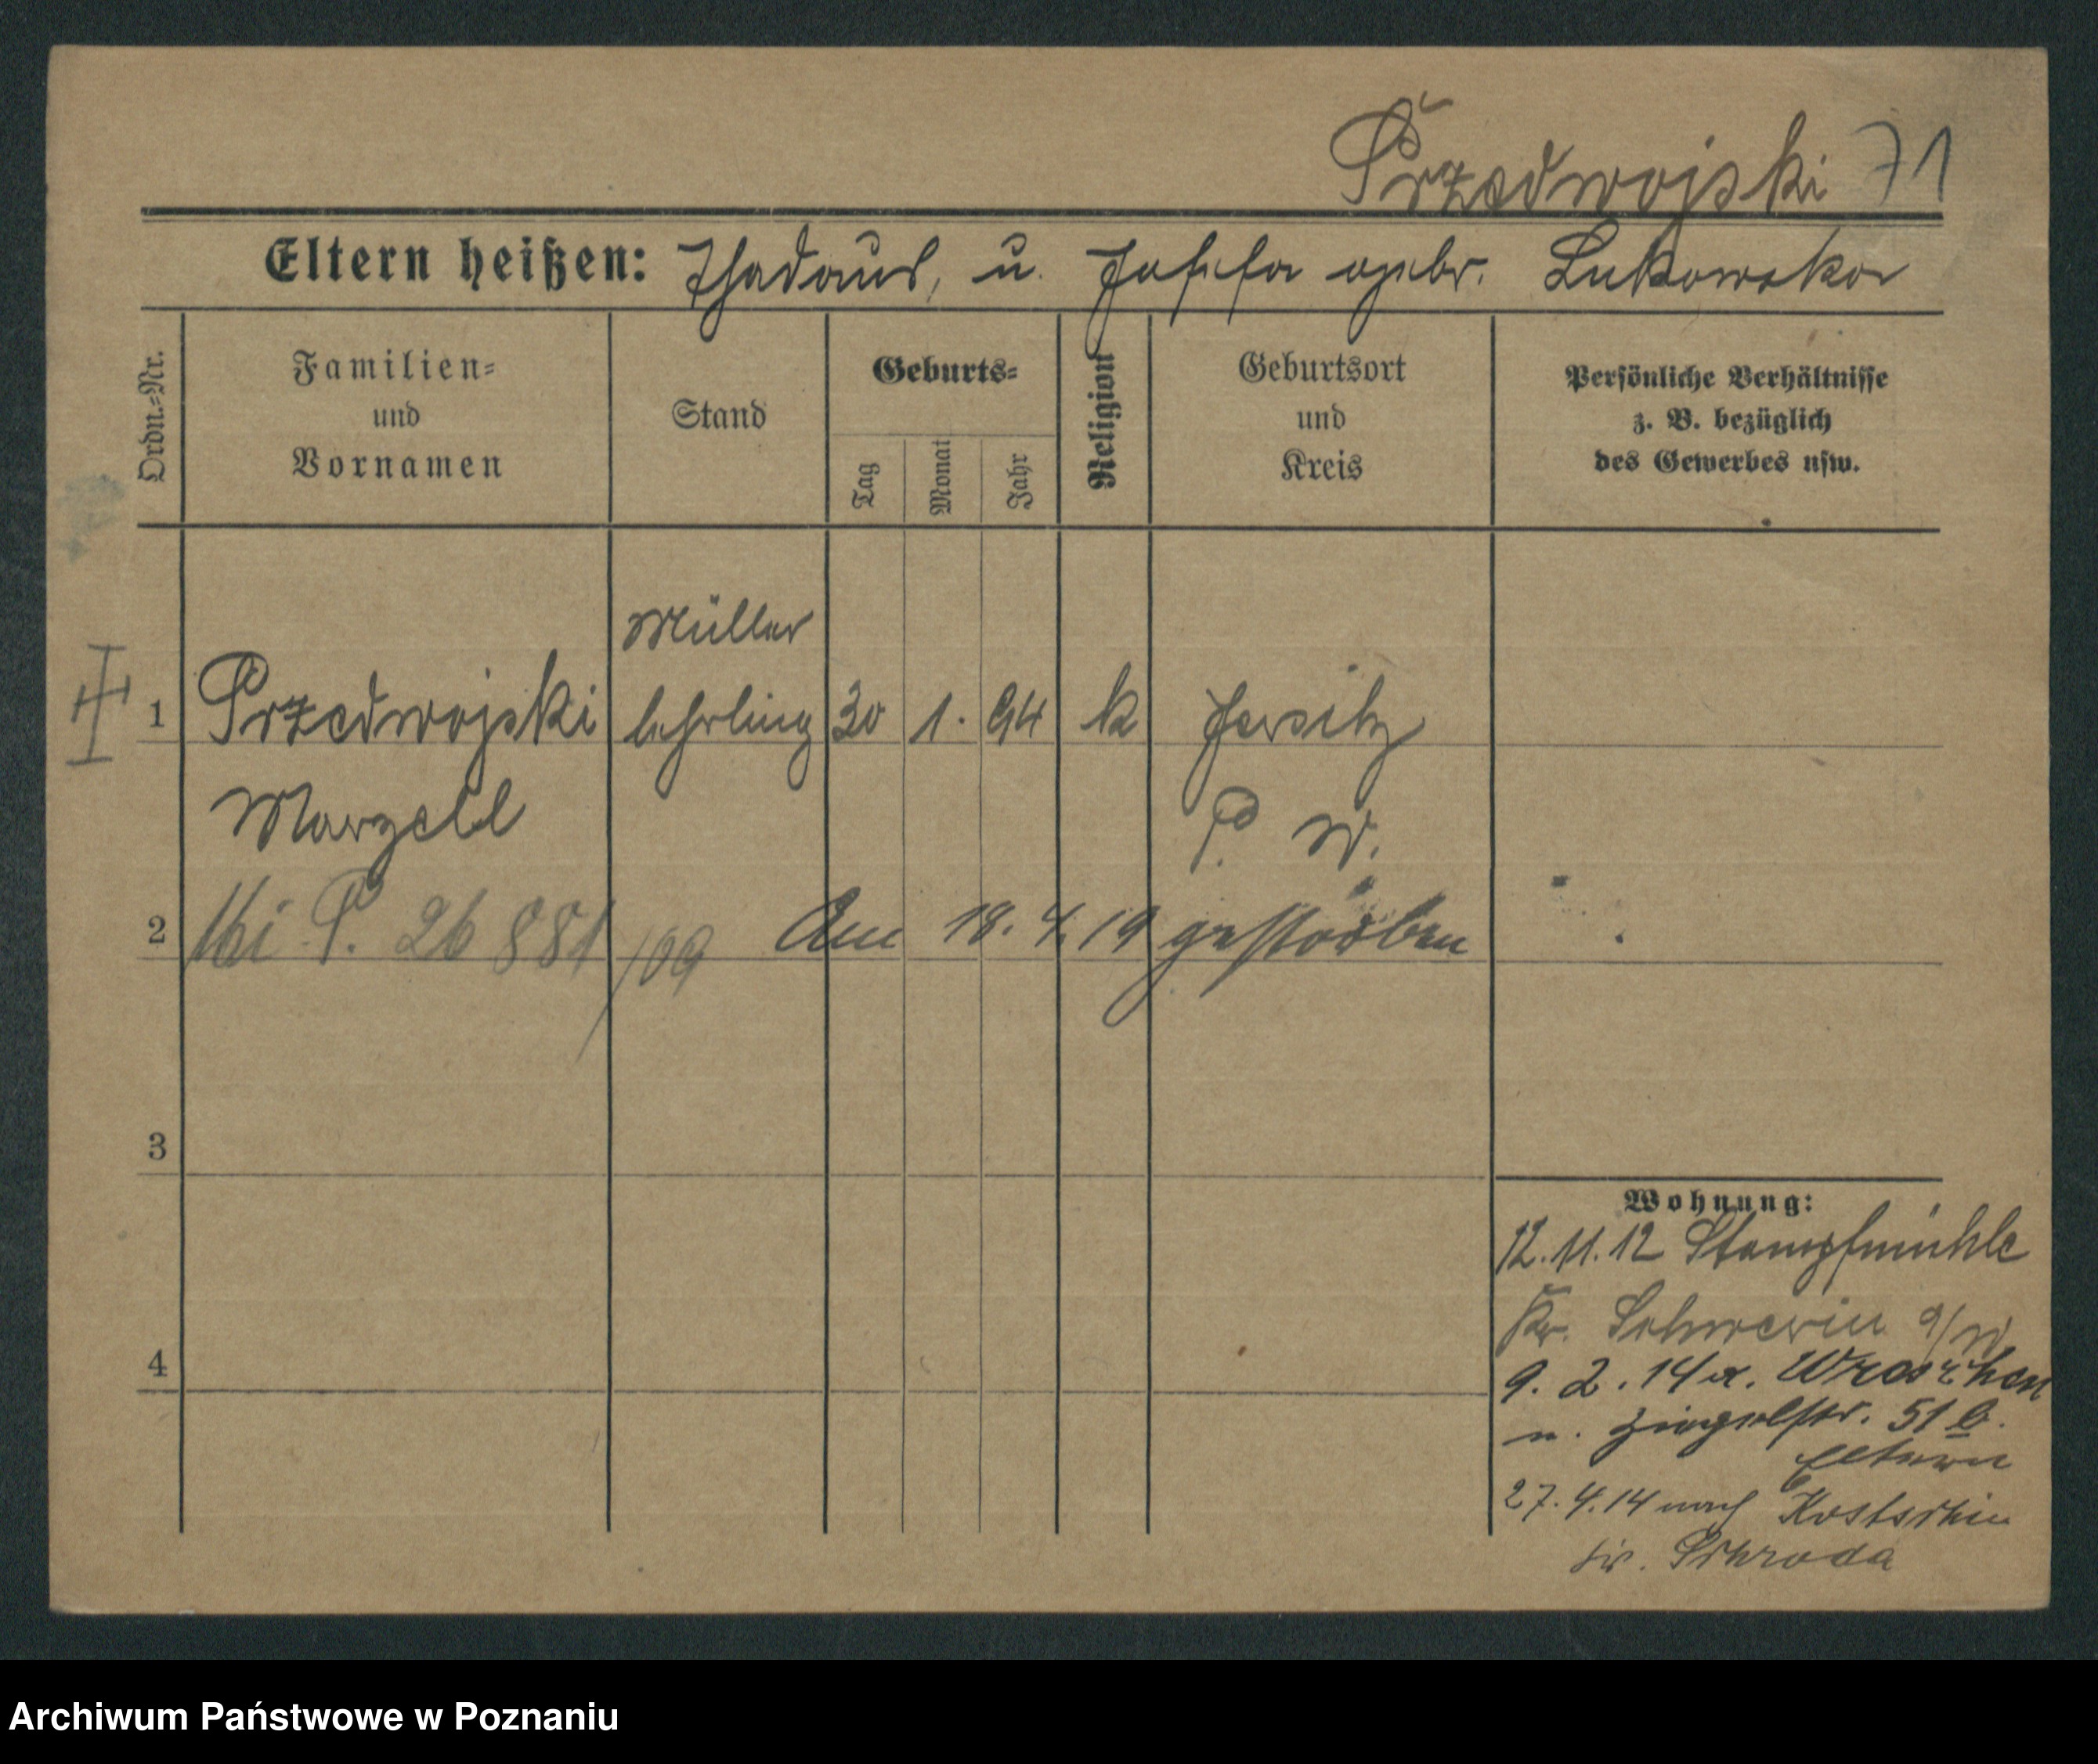 Przedwojski 71
Eltern heißen: Thadäus, u. Josefa gebr. Lukowska
Ordn.-Nr.
Familien-
und
Vornamen
Stand
Geburts-
Tag
Monat
Jahr
Religion
Geburtsort
und
Kreis
Persönliche Verhältnisse
z. B. bezüglich
des Gewerbes usw.
Müller
1 Przedwojski lehrling 30 1. 94 k Jersitz
Marzell P. W.
2 P. 26 881/09 Am 18. 4. 19 gestorben
3
4
Wohnung:
12.11.12 Stampfmühle
Kr. Schwerin a/W
9. 2. 14 v. Wreschen
n. Ziegelstr. 51 b.
Eltern
27.4.14 nach Kostschin
Kr. Schroda
Archiwum Państwowe w Poznaniu